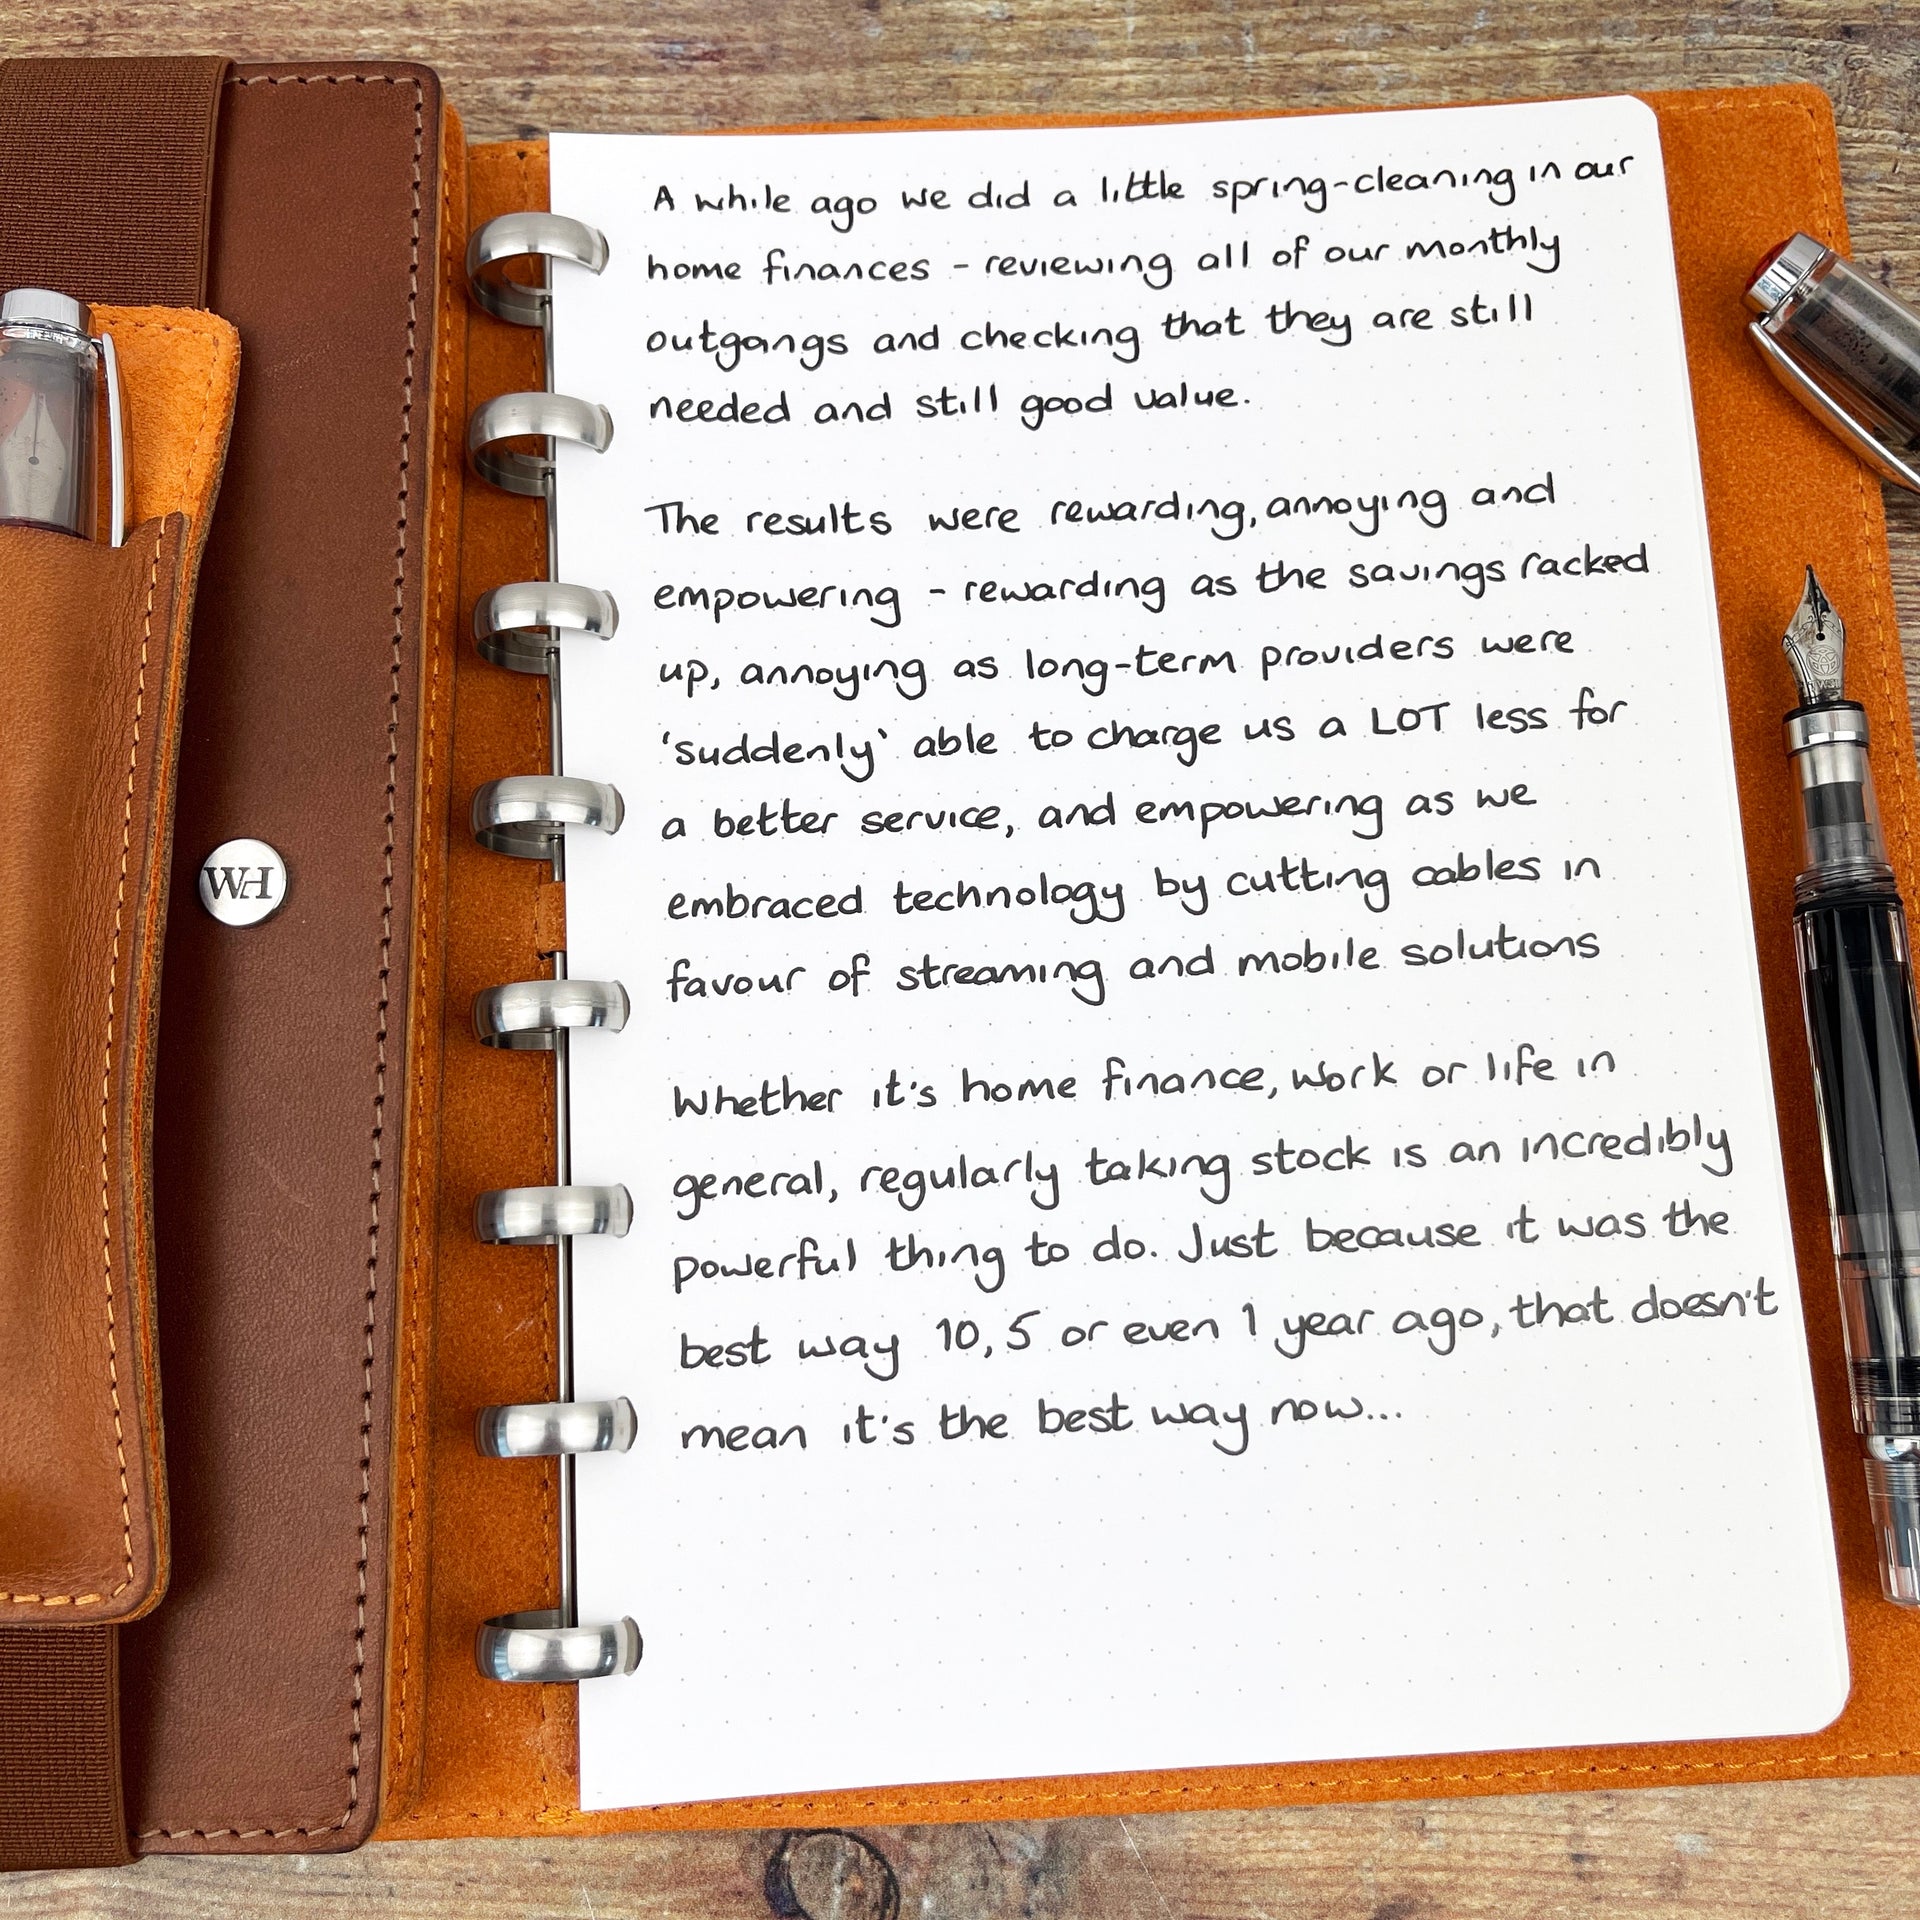 A while ago we did a little spring-cleaning in our
home finances - reviewing all of our monthly
outgangs and checking that they are still
needed and still good value.
The results were rewarding, annoying and
empowering - rewarding as the savings racked
up, annoying as long-term providers were
'suddenly' able to charge us a LOT less for
a better service, and empowering as we
embraced technology by cutting cables in
favour of streaming and mobile solutions
Whether it's home finance, work or life in
general, regularly taking stock is an incredibly
powerful thing to do. Just because it was the
best way 10, 5 or even 1 year ago, that doesn't
mean it's the best way now...
WH